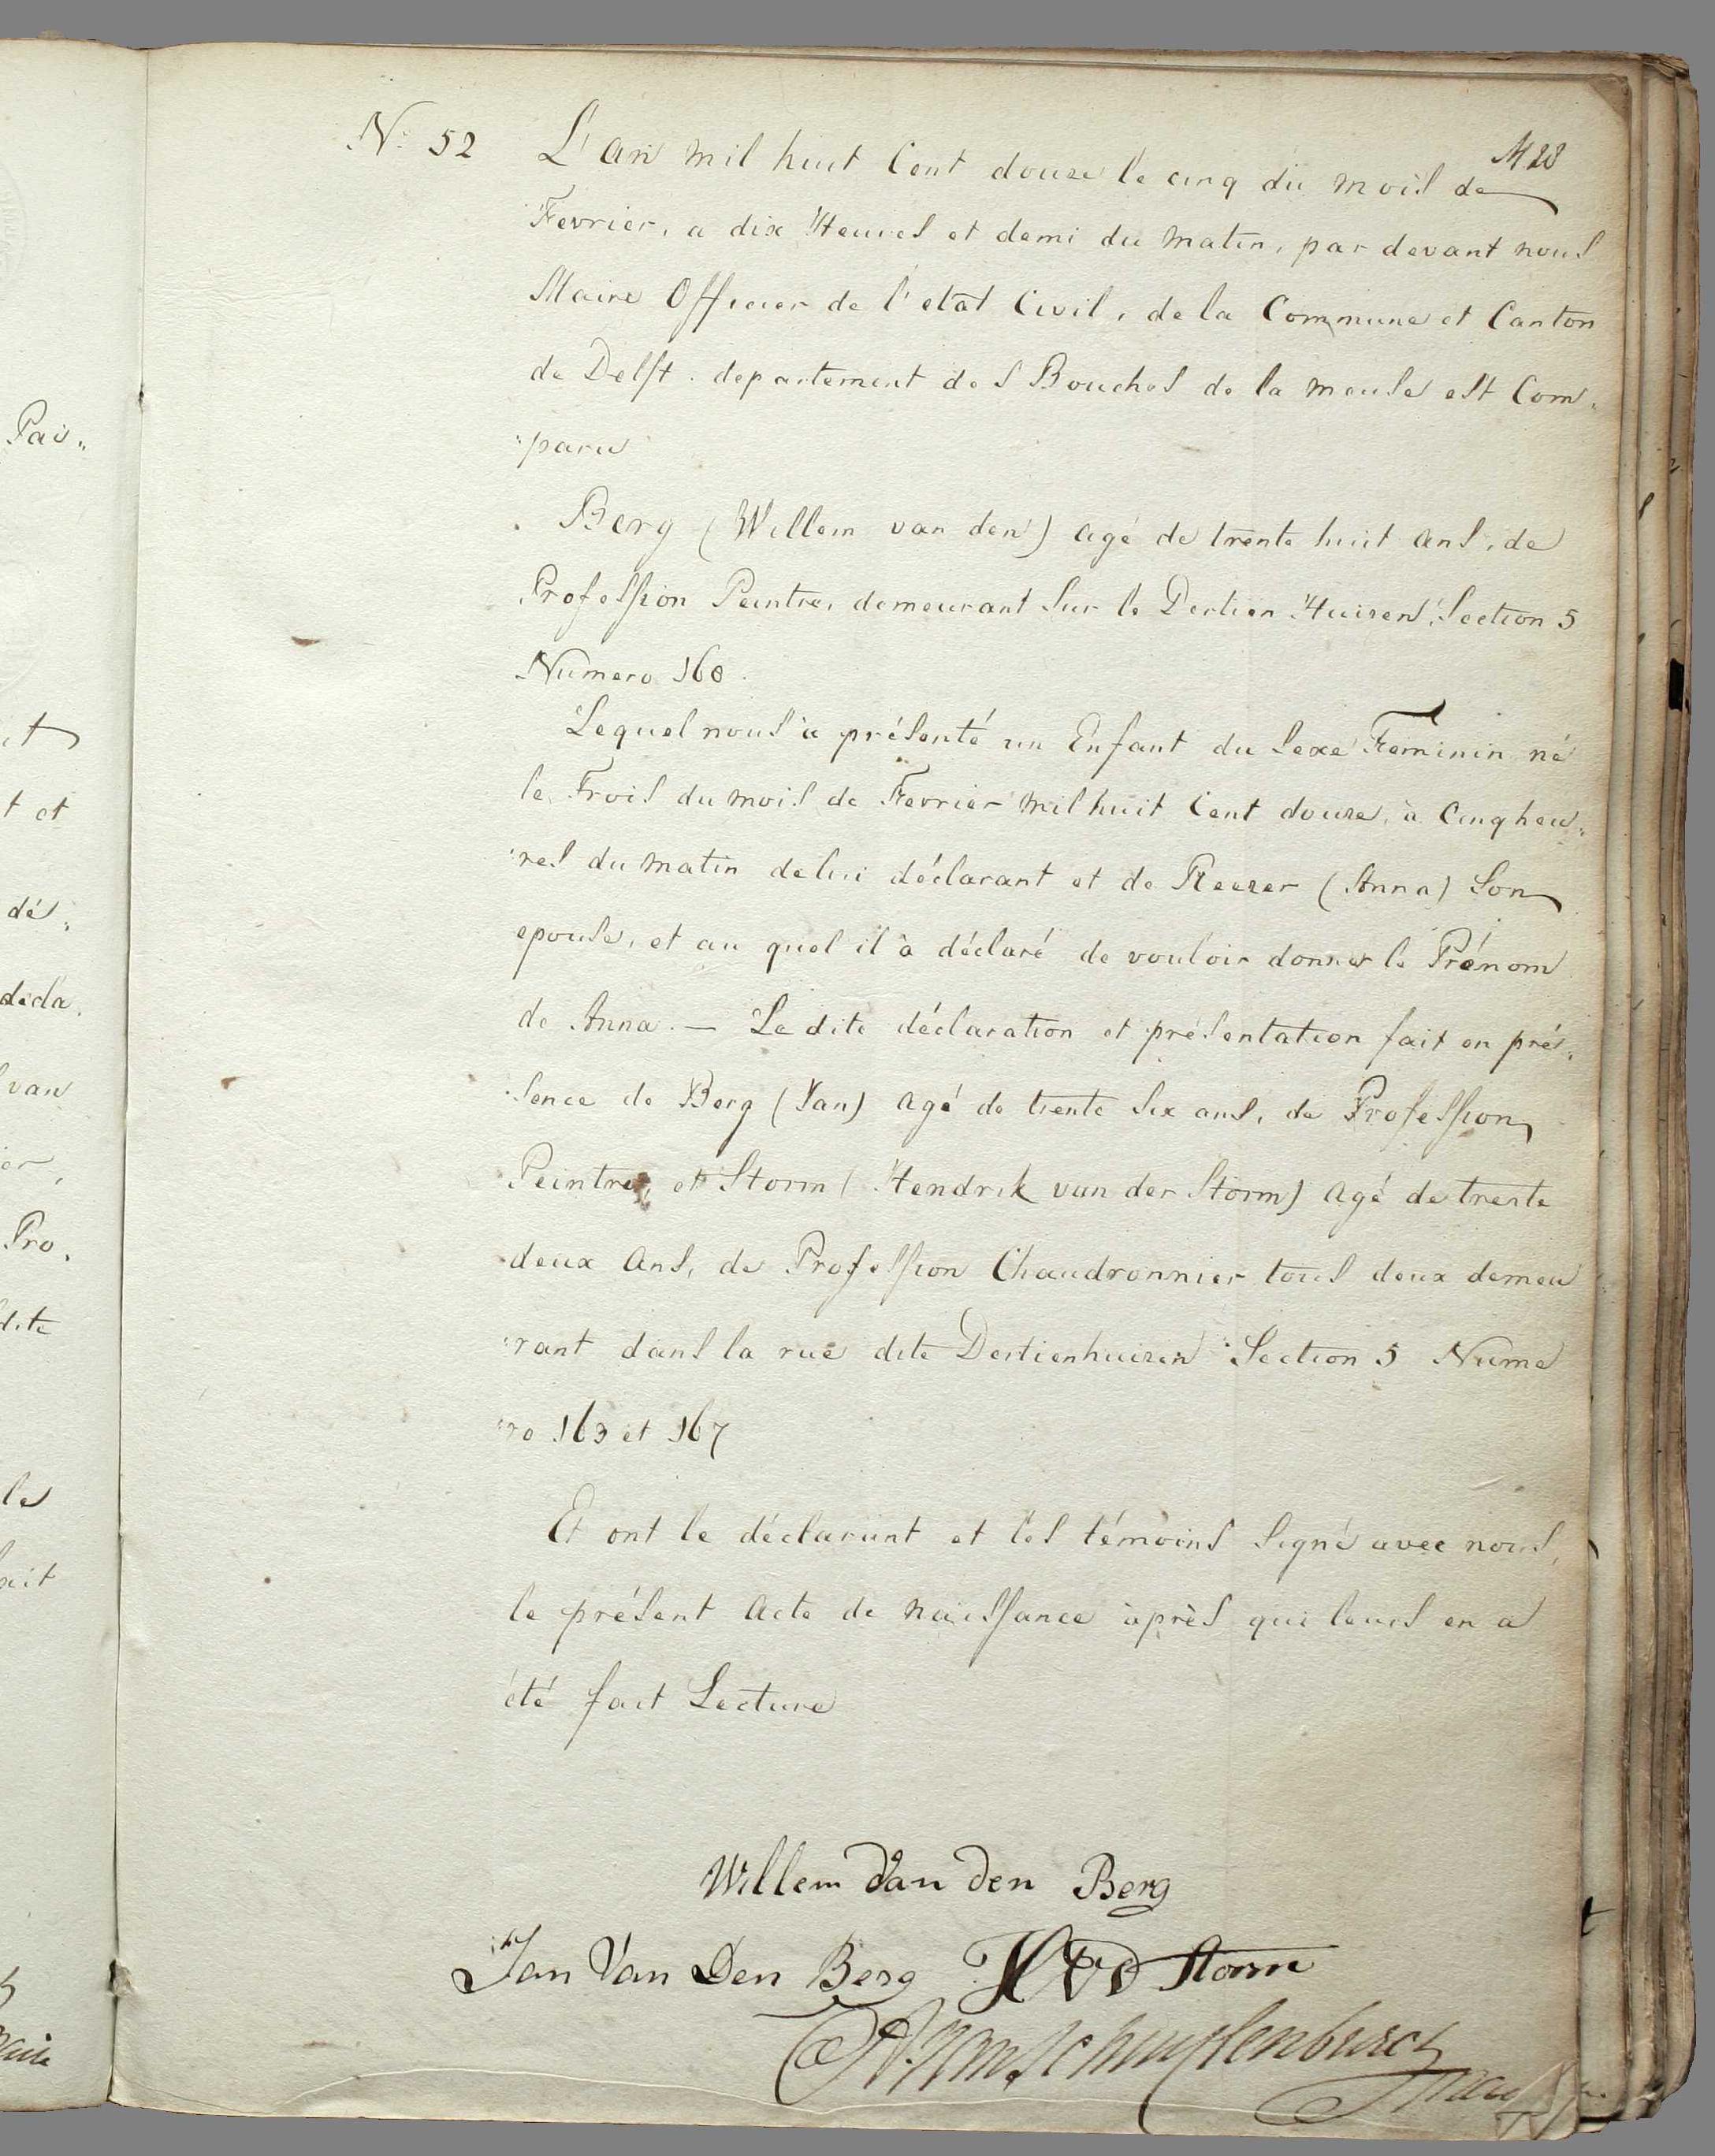 Nº 52
L'an mil huit Cent douze le cinq du mois de
Fevrier, a dix Heures et demi du matin, par devant nous
Maire Officier de l'etat Civil, de la Commune et Canton
de Delft. departement des Bouches de la meuse est Com„
„paru
Berg (Willem van den) agé de trente huit ans, de
Profession Peintre, demeurant Sur le Dertien Huizen, Section 5
Numero 168.
Lequel nous à présenté un Enfant du Sexe Feminin né
le Trois du mois de Fevrier mil huit Cent douze, à Cinq heu„
„res du matin de lui déclarant et de Reezer (Anna) Son
epouse, et au quel il à déclaré de vouloir donner le Prénom
de Anna. — La dite déclaration et présentation fait en pré„
„sence de Berg (Jan) agé de trente Six ans, de Profession
Peintre, et Storm (Hendrik van der Storm) agé de trente
deux Ans, de Profession Chaudronnier tous deux demeu
„rant dans la rue dite Dertienhuizen Section 5 Nume
„ro 163 et 167
Et ont le déclarant et les témoins Signé avec nous,
le présent Acte de naissance après que leurs en a
été fait Lecture
Willem Van den Berg
Jan Van Den Berg HVD Storm
Pai„
et
t et
dé„
decla„
van
er,
Pro„
dite
le
ait